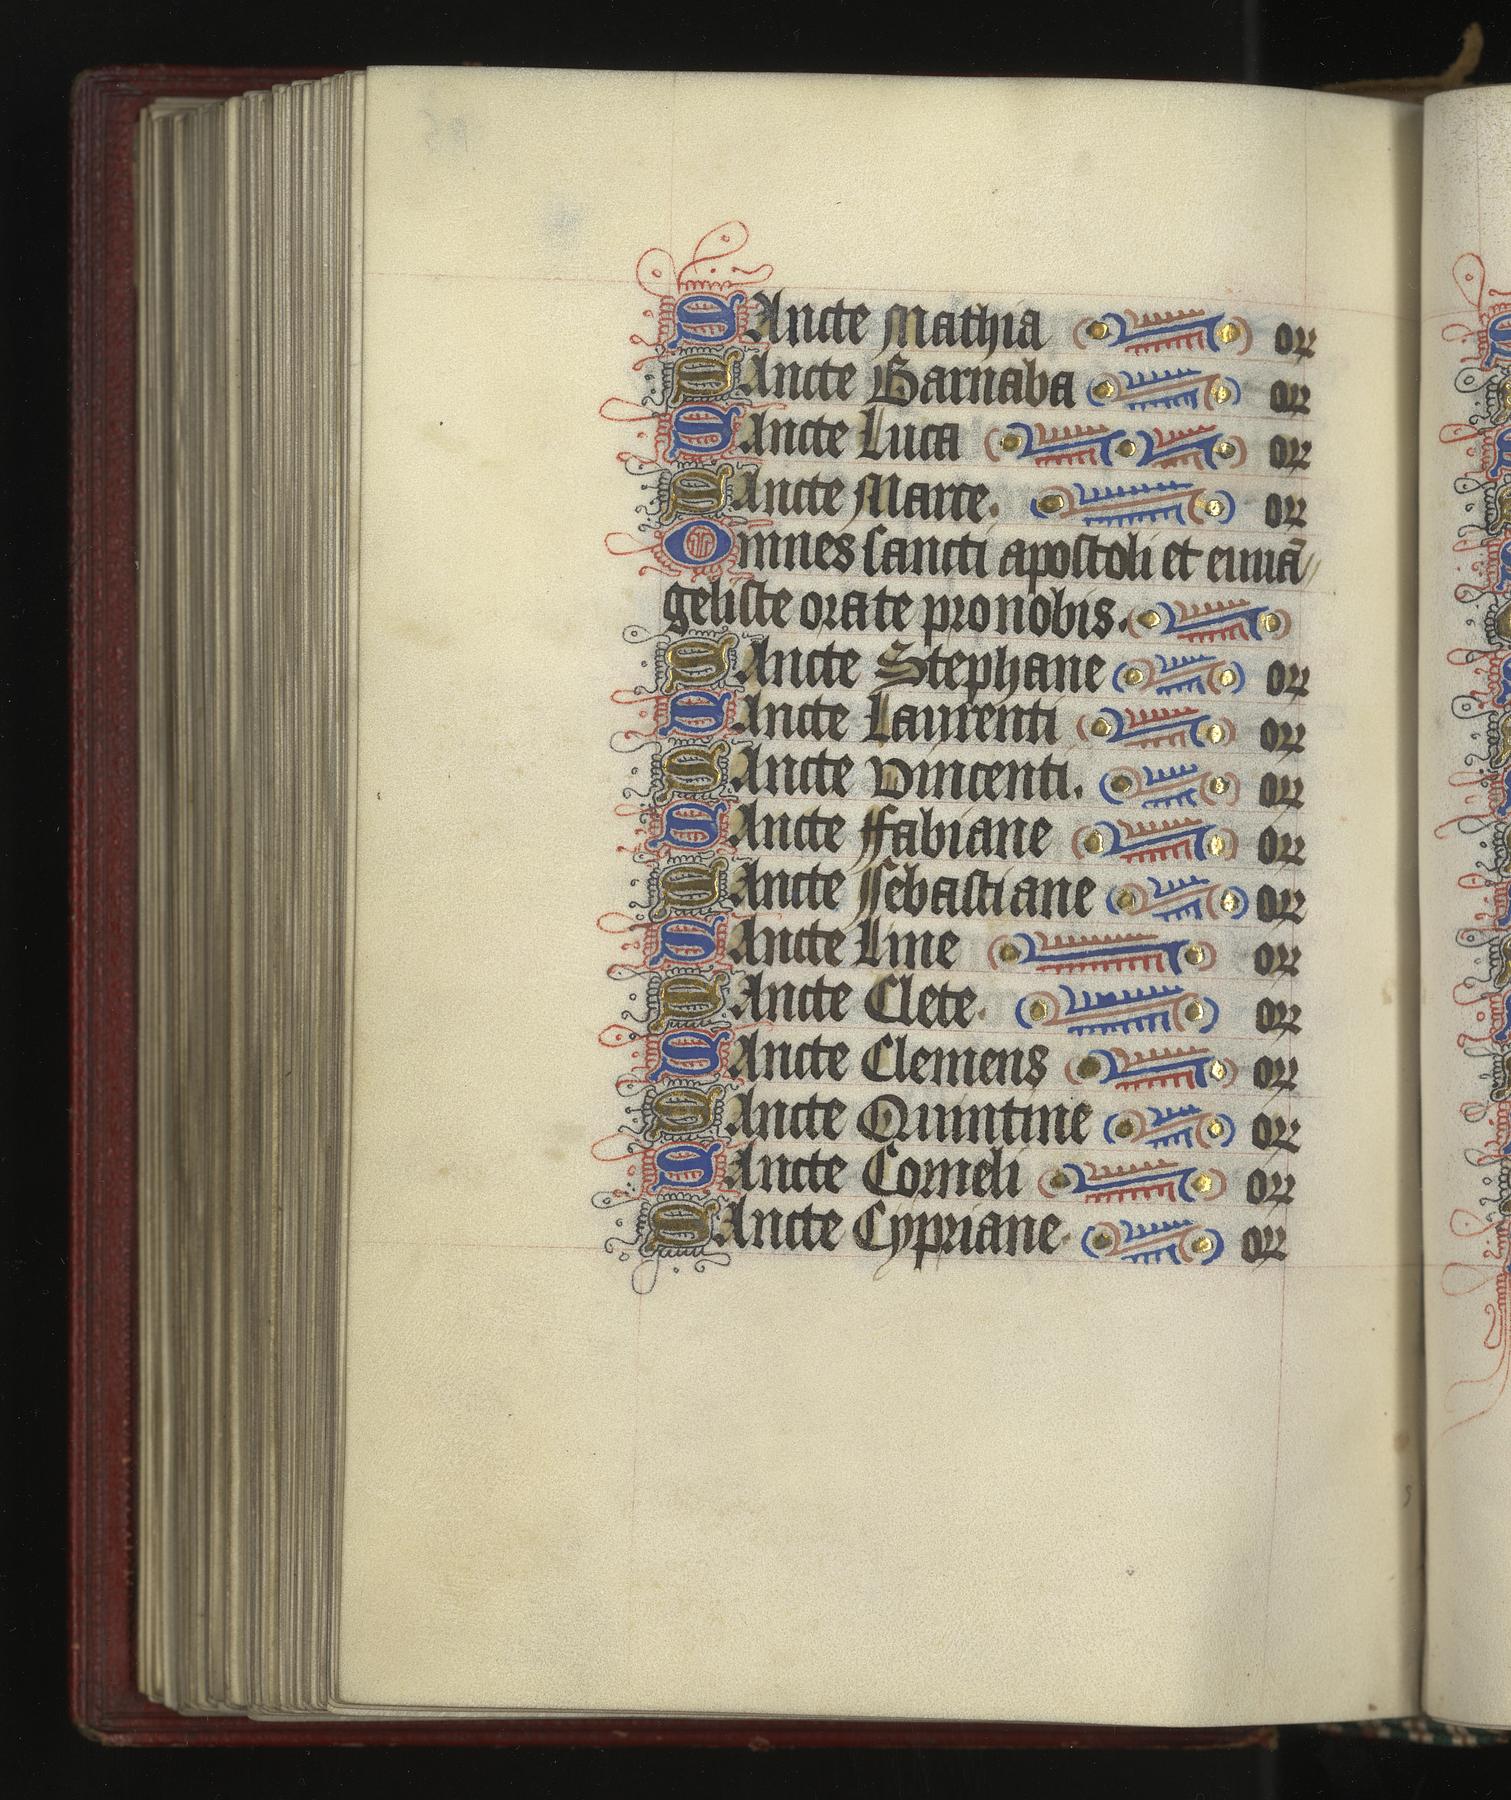 SAncte Mathia or
SAncte Barnaba or
SAncte Luca or
SAncte Marce. or
Omnes sancti apostoli et euuā
geliste orate pro nobis.
SAncte Stephane or
SAncte Laurenti or
SAncte vincenti. or
SAncte Ffabiane or
SAncte Sebastiane or
SAncte Line or
SAncte Clete. or
SAncte Clemens or
SAncte Quintine or
SAncte Corneli or
SAncte Cypriane or